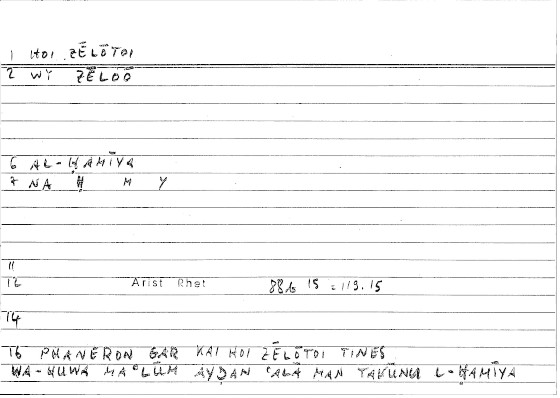 1 HOI ZĒLŌTOI
2 WY ZĒLOŌ
6 AL-ḤAMĪYA
7 NA Ḥ M Y
11
12 Arist Rhet 88b 15 = 119.15
14
16 PHANERON GAR KAI HOI ZĒLŌTOI TINES
WA-HUWA MAʿLŪM AYḌAN ʿALĀ MAN TAKŪNU L-ḤAMĪYA